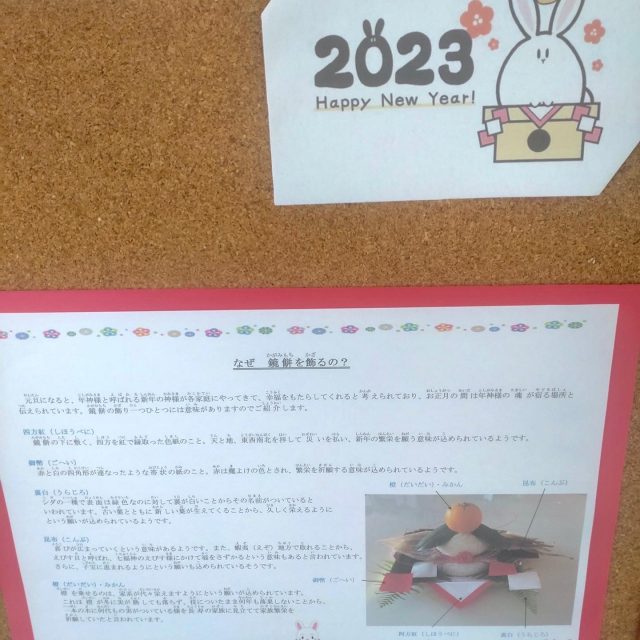 2023
Happy New Year!
なぜ 鏡餅を飾るの？
元旦になると、年神様と呼ばれる新年の神様が各家庭にやってきて、幸福をもたらしてくれると考えられており、お正月の間は年神様の魂が宿る場所と
伝えられています。鏡餅の飾り一つひとつには意味がありますのでご紹介します。
四方紅（しほうべに）
鏡餅の下に敷く、四方を紅で縁取った色紙のこと。天と地、東西南北を拝して災いを払い、新年の繁栄を願う意味が込められているようです。
御幣（ごへい）
赤と白の四角形が連なったような形状の紙のこと。赤は魔よけの色とされ、繁栄を祈願する意味が込められているようです。
裏白（うらじろ）
シダの一種であり、葉は緑色なのに対して裏が白いことからその名前がついていると
いわれています。古い葉とともに新しい葉が生えてくることから、久しく栄えるように
という願いが込められているようです。
昆布（こんぶ）
喜びが広まっていくという意味があるようです。また、蝦夷（えぞ）地方で取れることから、
えびす貝と呼ばれ、七福神のえびす様にかけて福をさずかるという意味もあると言われています。
さらに、子宝に恵まれるようにという願いも込められているそうです。
橙（だいだい）・みかん
橙を乗せるのは、家系が代々栄えますようにという願いが込められています。
これは橙が冬に実が熟しても落ちず、枝についたまま何年も落果しないことから、
一本の木に何代もの実がついている様を長寿の家族に見立てて家族繁栄を
祈願していたと言われています。
橙（だいだい）・みかん
昆布（こんぶ）
御幣（ごへい）
四方紅（しほうべに）
裏白（うらじろ）